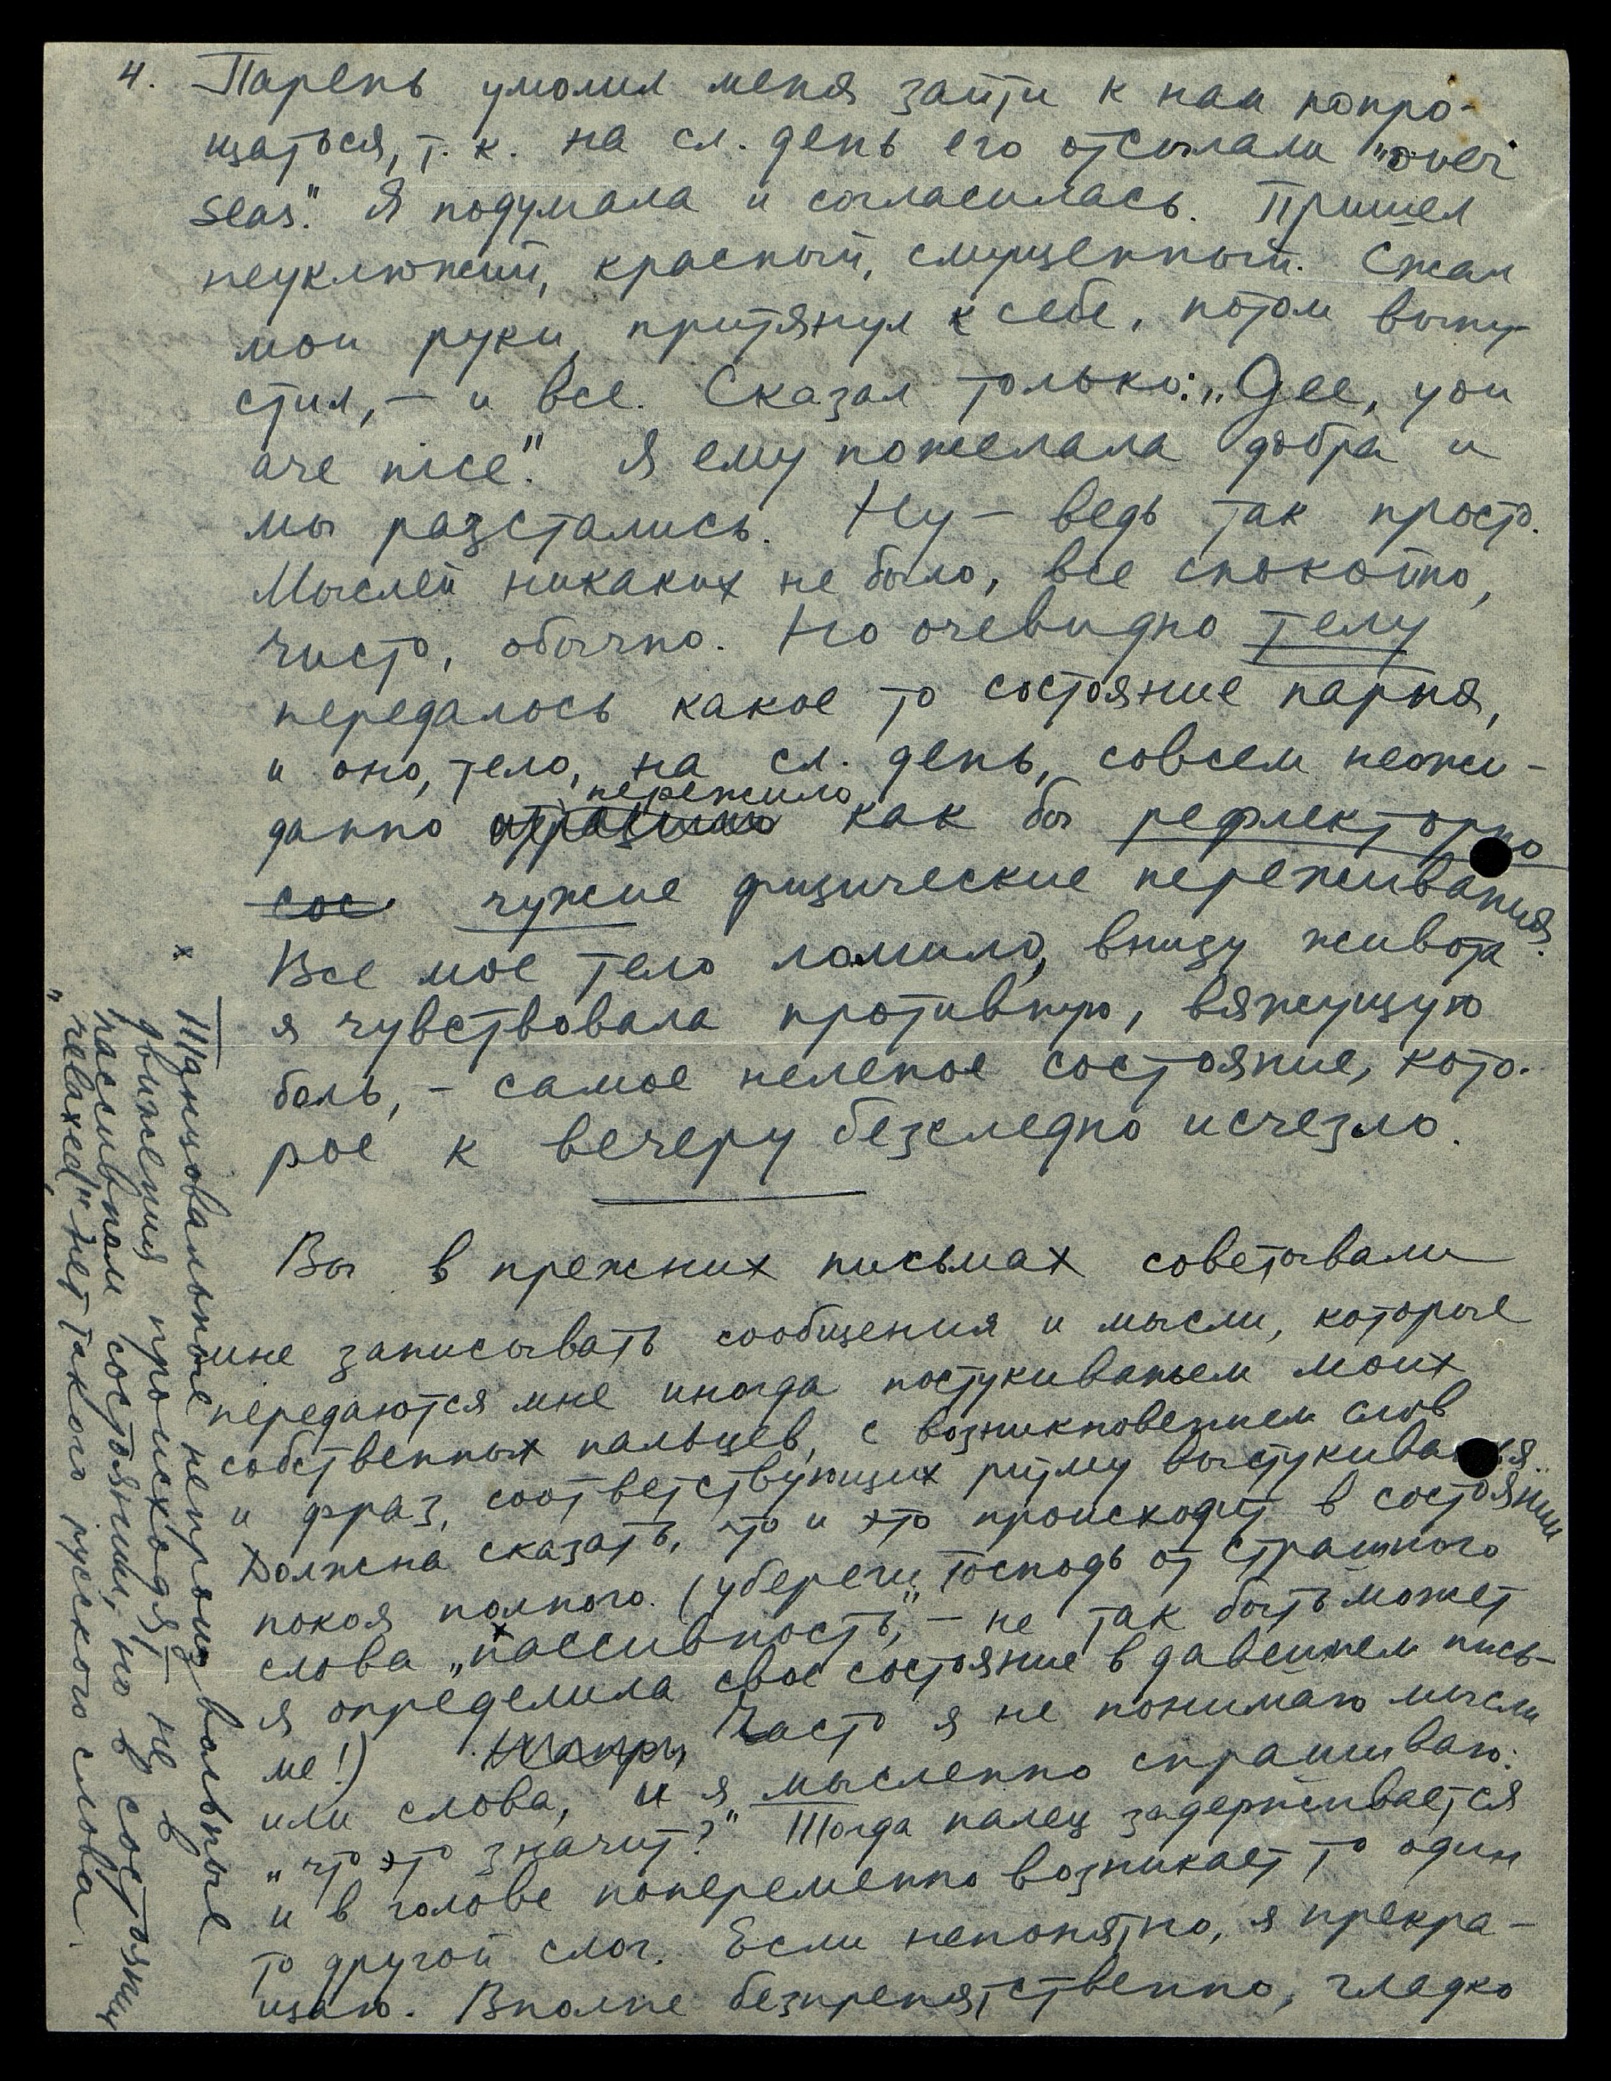 4. Парень умолил меня зайти к нам попро-
щаться, т. к. на сл. день его отсылали "over
seas". Я подумала и согласилась. Пришел
неуклюжий, красный, смущенный. Сжал
мои руки, притянул к себе, потом выпу-
стил, – и все. Сказал только: „Gee, you
are nice". Я ему пожелала добра и
мы разстались. Ну – ведь так просто.
Мыслей никаких не было, все спокойно,
чисто, обычно. Но очевидно телу
передалось какое то состояние парня,
и оно, тело, на сл. день, совсем неожи-
пережило
данно отразило как бы рефлекторно
сос чужие физические переживания.
Все мое тело ломило, внизу живота
я чувствовала противную, вяжущую
боль, – самое нелепое состояние, кото-
рое к вечеру безследно исчезло.
Вы в прежних письмах советовали
мне записывать сообщения и мысли, которые
передаются мне иногда постукиваньем моих
собственных пальцев, с возникновением слов
и фраз, соответствующих ритму выстукиванья.
Должна сказать, что и это происходит в состоянии
покоя полного. (убереги Господь от страшного
слова „пассивность", – не так быть может
x
я определила свое состояние в давешнем пись-
ме!) Часто я не понимаю мысли
или слова, и я мысленно спрашиваю:
„что это значит?" Тогда палец задерживается
и в голове попеременно возникает то один
то другой слог. Если непонятно, я прекра-
щаю. Вполне безпрепятственно, гладко
x Танцовальные непроизвольные
движения происходят не в
пассивном состоянии, но в состоянии
"relaxed" нет такого русского слова.